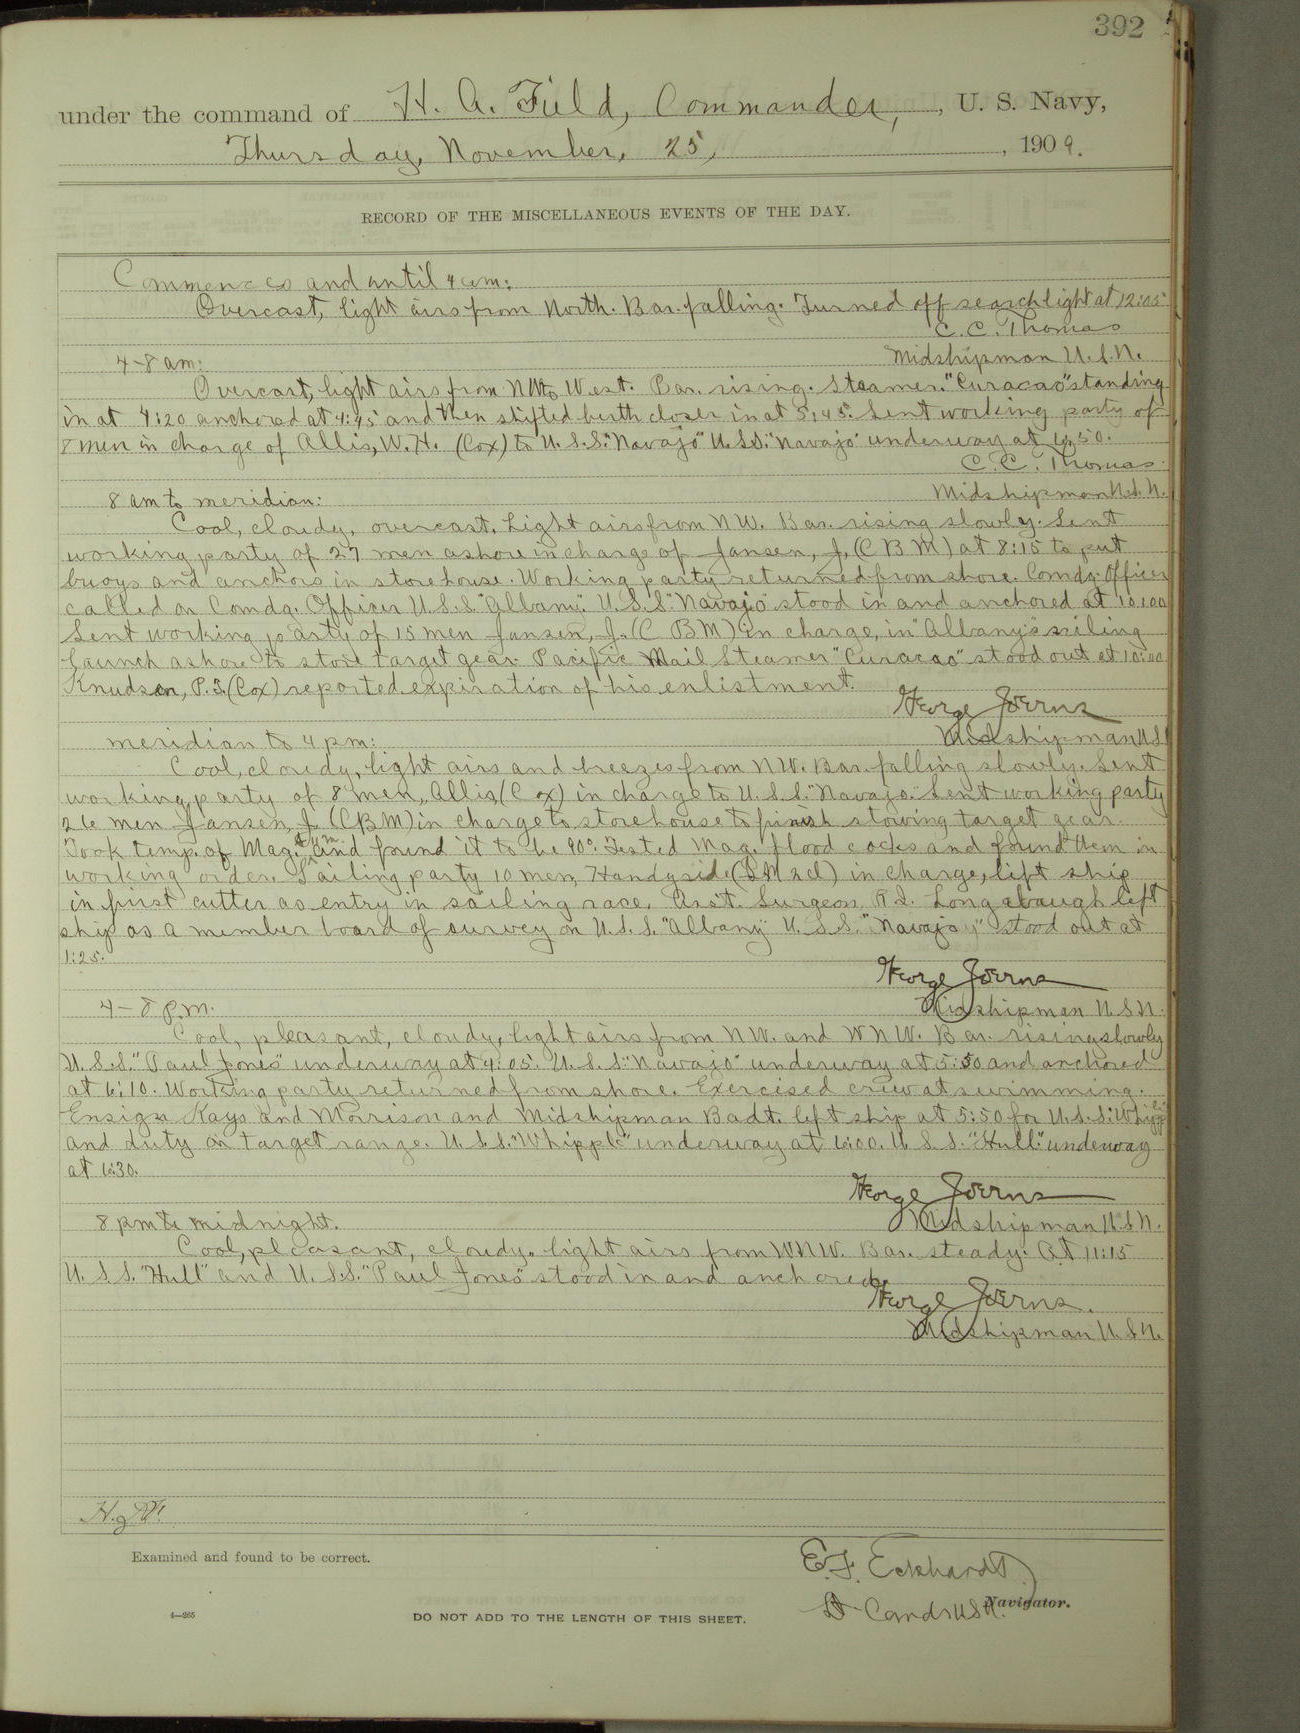 392
under the command of H. A. Field, Commander, , U. S. Navy,
Thursday, November, 25, , 1909.
RECORD OF THE MISCELLANEOUS EVENTS OF THE DAY.
Commences and until 4 am:
Overcast, light airs from North. Bar. falling. Turned off searchlight at 12:05
C. C. Thomas
4-8 am: Midshipman U.S.N.
Overcast, light airs from NW to West. Bar. rising. Steamer "Curacao" standing
in at 4:20 anchored at 4:45 and then shifted berth closer in at 5:45. Sent working party of
8 men in charge of Allis, W. H. (Cox) to U.S.S. "Navajo" U.S.S. "Navajo" underway at 6:50.
C. C. Thomas
8 am to meridian: Midshipman U.S.N.
Cool, cloudy, overcast. Light airs from NW. Bar. rising slowly. Sent
working party of 27 men ashore in charge of Jansen, J. (C B M) at 8:15 to put
buoys and anchors in storehouse. Working party returned from shore. Comdg. Officer
called on Comdg. Officer U.S.S. "Albany." U.S.S. "Navajo" stood in and anchored at 10:00
Sent working party of 15 men Jansen, J. (C BM) in charge, in "Albany's" sailing
launch ashore to store target gear. Pacific Mail Steamer "Curacao" stood out at
Knudsen, P. S. (Cox) reported expiration of his enlistment.
George Joerns
meridian to 4 pm: Midshipman U.S.
Cool, cloudy, light airs and breezes from NW. Bar. falling slowly. Sent
working party of 8 men, Allis, (Cox) in charge to U.S.S. "Navajo." Sent working party
26 men Jansen, J. (CBM) in charge to storehouse to finish stowing target gear.
Took temp. of Mag. and found it to be 90°. Tested Mag. flood cocks and found them in
working order. Sailing party 10 men, Handyside (SM 2cl) in charge, left ship
in first cutter as entry in sailing race. Ass't. Surgeon R. I. Longabaugh left
ship as a member board of survey on U.S.S. "Albany" U.S.S. "Navajo" stood out at
1:25.
George Joerns
4-8 p.m. Midshipman U.S.N.
Cool, pleasant, cloudy, light airs from NW. and WNW. Bar. rising slowly
U.S.S. "Paul Jones" underway at 4:05 U.S.S. "Navajo" underway at 5:50 and anchored
at 6:10. Working party returned from shore. Exercised crew at swimming.
Ensign Kays and Morrison and Midshipman Badt. left ship at 5:50 for U.S.S. "Whipple"
and duty on target range. U.S.S. "Whipple" underway at 6:00. U.S.S. "Hull" underway
at 6:30.
George Joerns
8 pm to midnight. Midshipman U.S.N.
Cool, pleasant, cloudy, light airs from WNW. Bar. steady. At 11:15
U.S.S. "Hull" and U.S.S. "Paul Jones" stood in and anchored.
George Joerns.
Midshipman U.S.N.
Examined and found to be correct.
E. F. Eckhardt
Lt Comdr U.S.N. Navigator.
4—265
DO NOT ADD TO THE LENGTH OF THIS SHEET.